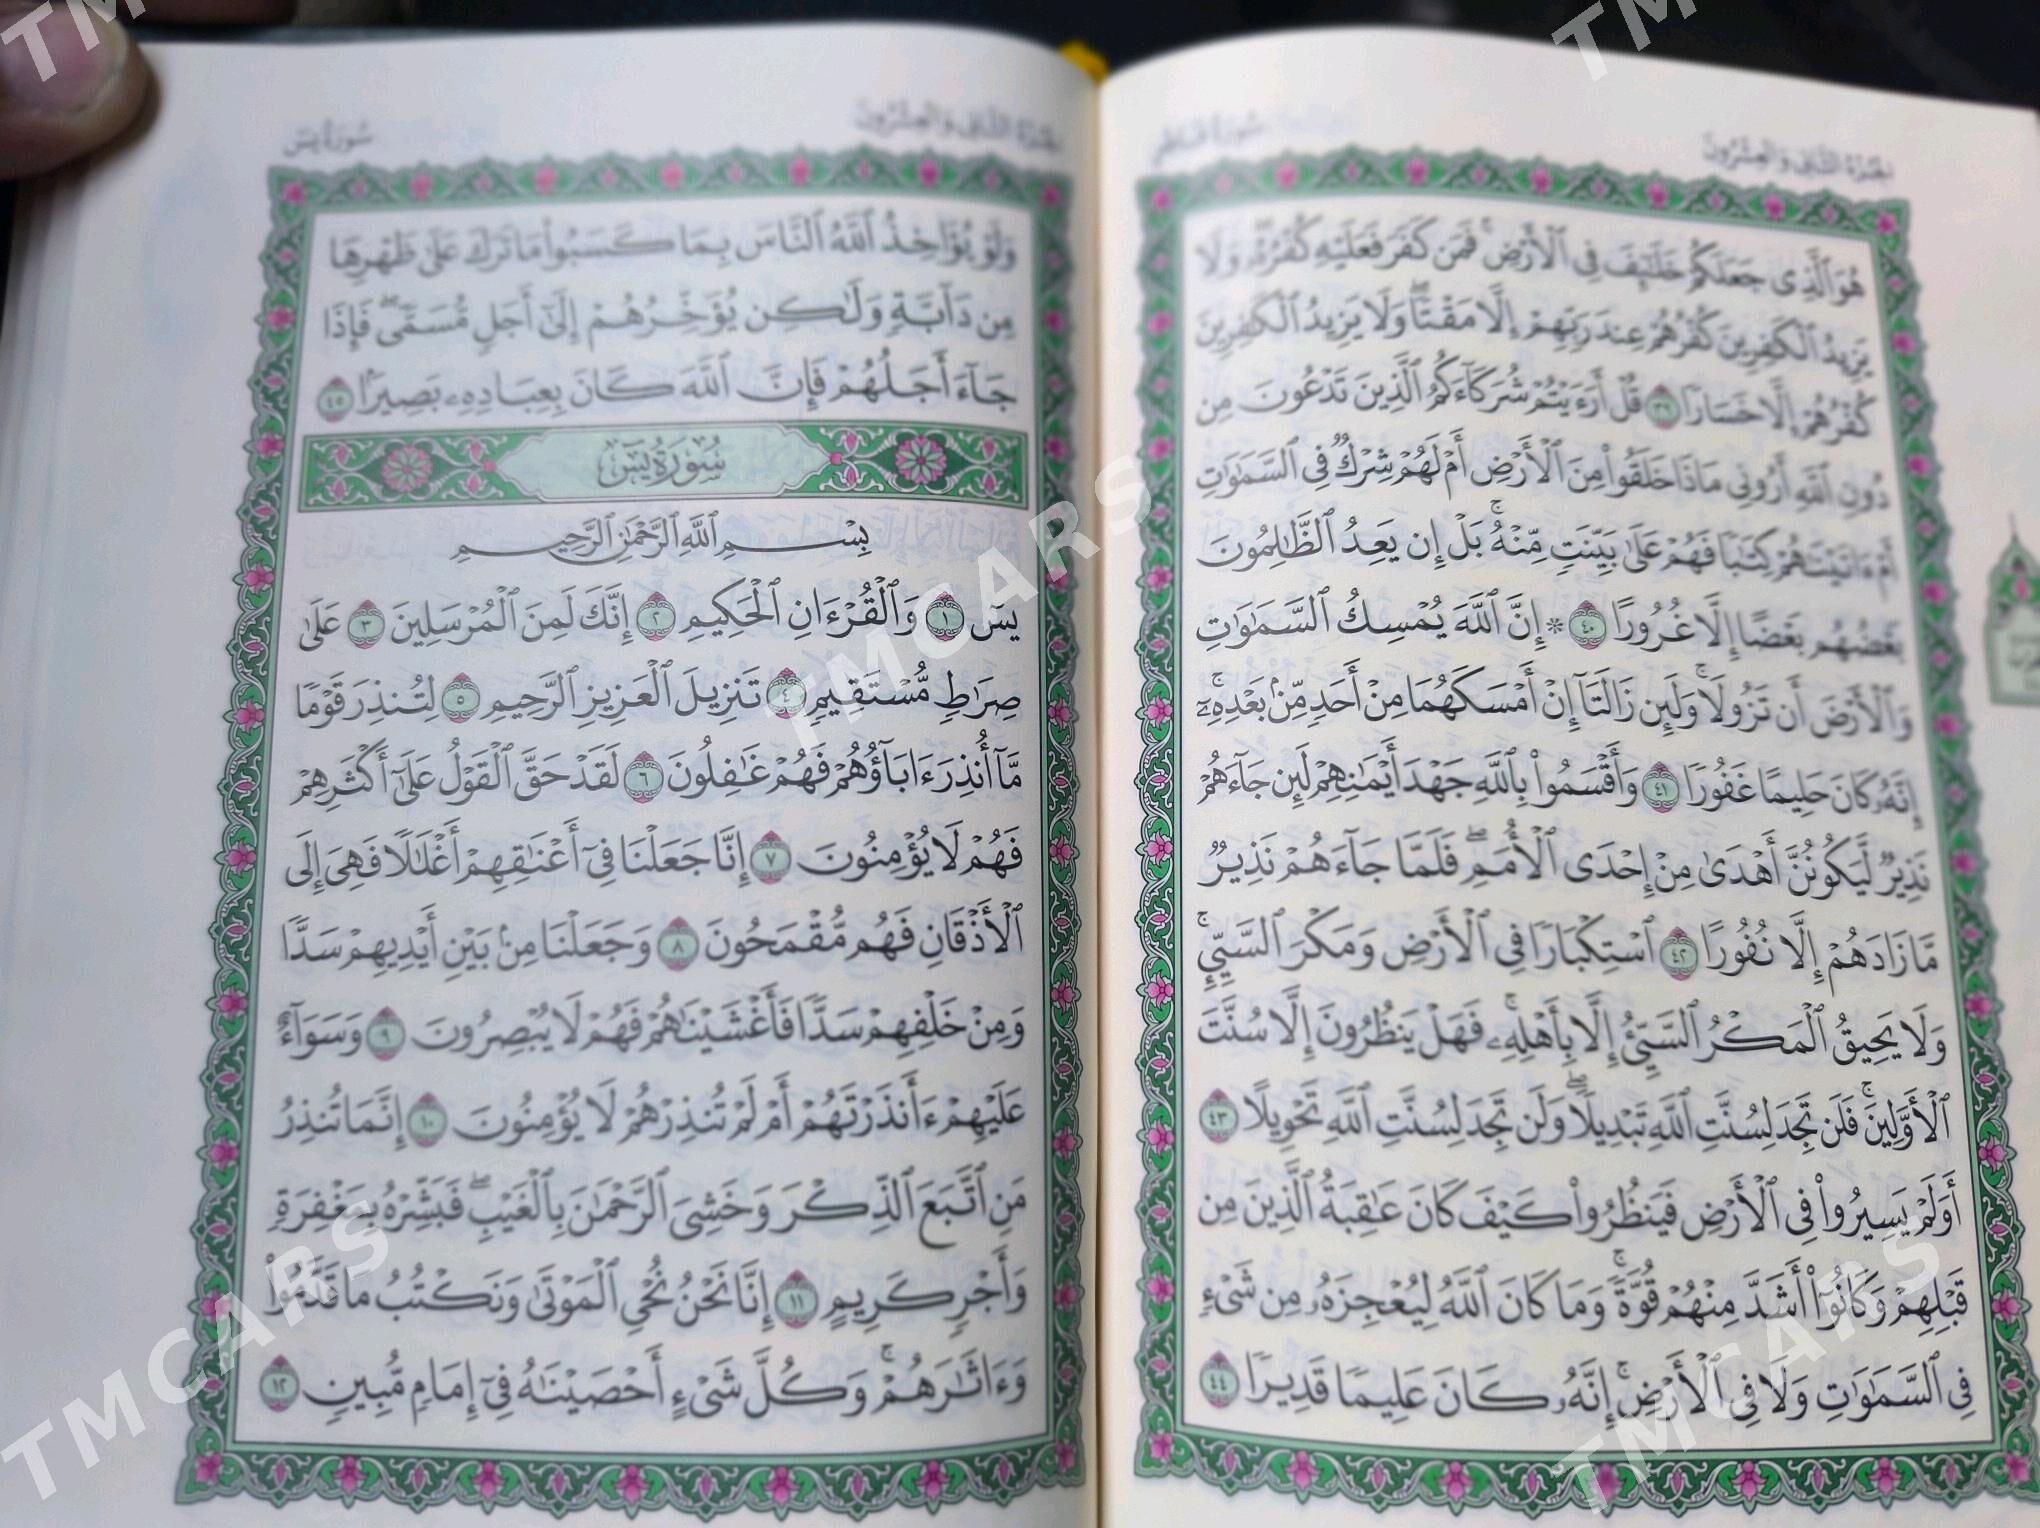 الجزء الثاني والعشرون
سورة فاطر
هُوَ ٱلَّذِى جَعَلَكُمْ خَلَٰٓئِفَ فِى ٱلْأَرْضِ ۚ فَمَن كَفَرَ فَعَلَيْهِ كُفْرُهُۥ ۖ وَلَا
يَزِيدُ ٱلْكَٰفِرِينَ كُفْرُهُمْ عِندَ رَبِّهِمْ إِلَّا مَقْتًا ۖ وَلَا يَزِيدُ ٱلْكَٰفِرِينَ
كُفْرُهُمْ إِلَّا خَسَارًا ٣٩ قُلْ أَرَءَيْتُمْ شُرَكَآءَكُمُ ٱلَّذِينَ تَدْعُونَ مِن
دُونِ ٱللَّهِ أَرُونِى مَاذَا خَلَقُوا۟ مِنَ ٱلْأَرْضِ أَمْ لَهُمْ شِرْكٌ فِى ٱلسَّمَٰوَٰتِ
أَمْ ءَاتَيْنَٰهُمْ كِتَٰبًا فَهُمْ عَلَىٰ بَيِّنَتٍ مِّنْهُ ۚ بَلْ إِن يَعِدُ ٱلظَّٰلِمُونَ
بَعْضُهُم بَعْضًا إِلَّا غُرُورًا ٤٠ ۞ إِنَّ ٱللَّهَ يُمْسِكُ ٱلسَّمَٰوَٰتِ
وَٱلْأَرْضَ أَن تَزُولَا ۚ وَلَئِن زَالَتَآ إِنْ أَمْسَكَهُمَا مِنْ أَحَدٍ مِّنۢ بَعْدِهِۦٓ ۚ
إِنَّهُۥ كَانَ حَلِيمًا غَفُورًا ٤١ وَأَقْسَمُوا۟ بِٱللَّهِ جَهْدَ أَيْمَٰنِهِمْ لَئِن جَآءَهُمْ
نَذِيرٌ لَّيَكُونُنَّ أَهْدَىٰ مِنْ إِحْدَى ٱلْأُمَمِ ۖ فَلَمَّا جَآءَهُمْ نَذِيرٌ
مَّا زَادَهُمْ إِلَّا نُفُورًا ٤٢ ٱسْتِكْبَارًا فِى ٱلْأَرْضِ وَمَكْرَ ٱلسَّيِّئِ ۚ
وَلَا يَحِيقُ ٱلْمَكْرُ ٱلسَّيِّئُ إِلَّا بِأَهْلِهِۦ ۚ فَهَلْ يَنظُرُونَ إِلَّا سُنَّتَ
ٱلْأَوَّلِينَ ۚ فَلَن تَجِدَ لِسُنَّتِ ٱللَّهِ تَبْدِيلًا ۖ وَلَن تَجِدَ لِسُنَّتِ ٱللَّهِ تَحْوِيلًا ٤٣
أَوَلَمْ يَسِيرُوا۟ فِى ٱلْأَرْضِ فَيَنظُرُوا۟ كَيْفَ كَانَ عَٰقِبَةُ ٱلَّذِينَ مِن
قَبْلِهِمْ وَكَانُوٓا۟ أَشَدَّ مِنْهُمْ قُوَّةً ۚ وَمَا كَانَ ٱللَّهُ لِيُعْجِزَهُۥ مِن شَىْءٍ
فِى ٱلسَّمَٰوَٰتِ وَلَا فِى ٱلْأَرْضِ ۚ إِنَّهُۥ كَانَ عَلِيمًا قَدِيرًا ٤٤
الجزء الثاني والعشرون
سورة يس
وَلَوْ يُؤَاخِذُ ٱللَّهُ ٱلنَّاسَ بِمَا كَسَبُوا۟ مَا تَرَكَ عَلَىٰ ظَهْرِهَا
مِن دَآبَّةٍ وَلَٰكِن يُؤَخِّرُهُمْ إِلَىٰٓ أَجَلٍ مُّسَمًّى ۖ فَإِذَا
جَآءَ أَجَلُهُمْ فَإِنَّ ٱللَّهَ كَانَ بِعِبَادِهِۦ بَصِيرًۢا ٤٥
سُورَةُ يسٓ
بِسْمِ ٱللَّهِ ٱلرَّحْمَٰنِ ٱلرَّحِيمِ
يسٓ ١ وَٱلْقُرْءَانِ ٱلْحَكِيمِ ٢ إِنَّكَ لَمِنَ ٱلْمُرْسَلِينَ ٣ عَلَىٰ
صِرَٰطٍ مُّسْتَقِيمٍ ٤ تَنزِيلَ ٱلْعَزِيزِ ٱلرَّحِيمِ ٥ لِتُنذِرَ قَوْمًا
مَّآ أُنذِرَ ءَابَآؤُهُمْ فَهُمْ غَٰفِلُونَ ٦ لَقَدْ حَقَّ ٱلْقَوْلُ عَلَىٰٓ أَكْثَرِهِمْ
فَهُمْ لَا يُؤْمِنُونَ ٧ إِنَّا جَعَلْنَا فِىٓ أَعْنَٰقِهِمْ أَغْلَٰلًا فَهِىَ إِلَى
ٱلْأَذْقَانِ فَهُم مُّقْمَحُونَ ٨ وَجَعَلْنَا مِنۢ بَيْنِ أَيْدِيهِمْ سَدًّا
وَمِنْ خَلْفِهِمْ سَدًّا فَأَغْشَيْنَٰهُمْ فَهُمْ لَا يُبْصِرُونَ ٩ وَسَوَآءٌ
عَلَيْهِمْ ءَأَنذَرْتَهُمْ أَمْ لَمْ تُنذِرْهُمْ لَا يُؤْمِنُونَ ١٠ إِنَّمَا تُنذِرُ
مَنِ ٱتَّبَعَ ٱلذِّكْرَ وَخَشِىَ ٱلرَّحْمَٰنَ بِٱلْغَيْبِ ۖ فَبَشِّرْهُ بِمَغْفِرَةٍ
وَأَجْرٍ كَرِيمٍ ١١ إِنَّا نَحْنُ نُحْىِ ٱلْمَوْتَىٰ وَنَكْتُبُ مَا قَدَّمُوا۟
وَءَاثَٰرَهُمْ ۚ وَكُلَّ شَىْءٍ أَحْصَيْنَٰهُ فِىٓ إِمَامٍ مُّبِينٍ ١٢
TMCARS
TMCARS
TMCARS